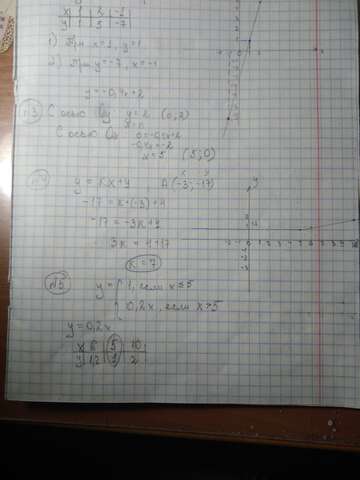 x 1 3 -1
y 1 5 -7
1) При x=1, y=1
2) При y=-7, x=-1
y=-0,4x+2
№3 С осью Oy y=2 (0;2)
С осью Ox 0=-0,4x+2
-0,4x=-2
x=5 (5;0)
x y
y=kx+4 A(-3;-17)
-17=k·(-3)+4
-17=-3k+4
3k=4+17
k=7
№5 y= 1, если x≤5
0,2x, если x>5
y=0,2x
x 6 5 10
y 1,2 1 2